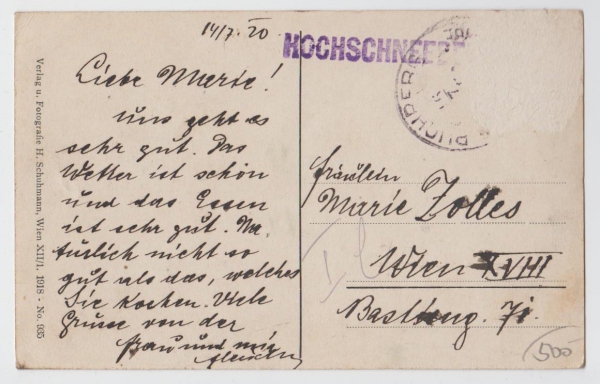 14/7. 20
HOCHSCHNEEB
PUCHBERG
Liebe Marie!
uns geht es
sehr gut. Das
Wetter ist schön
und das Essen
ist sehr gut. Na
türlich nicht so
gut als das, welches
Sie kochen. Viele
Grüsse von der
Frau und mir
Fräulein
Marie Zolles
Wien XVIII
Bastieng. 71.
500
Verlag u. Fotografie H. Schuhmann, Wien XII/1. 1918 - No. 935